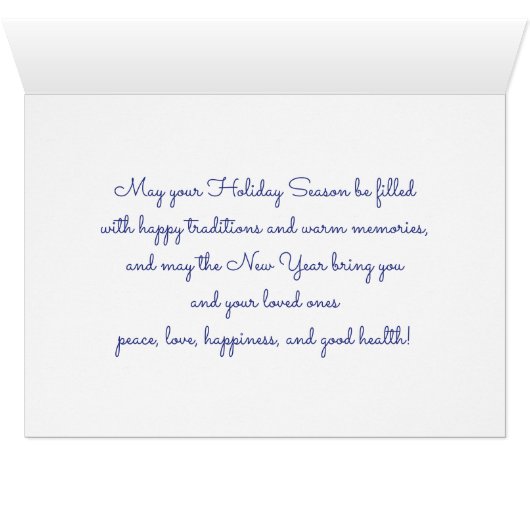 May your Holiday Season be filled
with happy traditions and warm memories,
and may the New Year bring you
and your loved ones
peace, love, happiness, and good health!